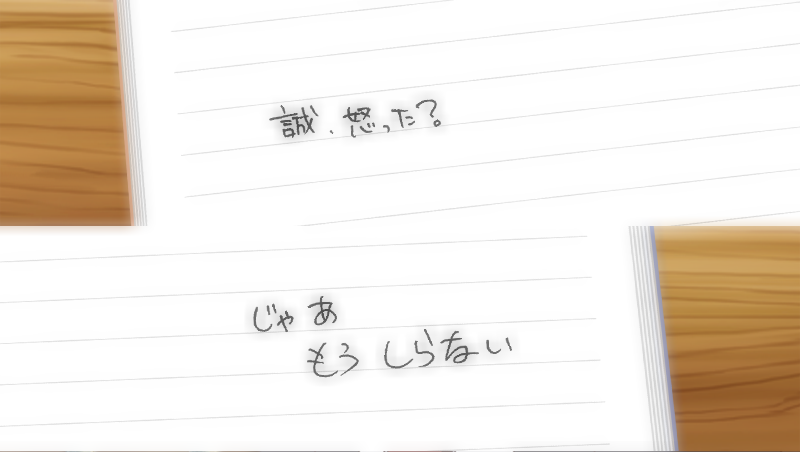 誠、怒った?
じゃあ
もうしらない